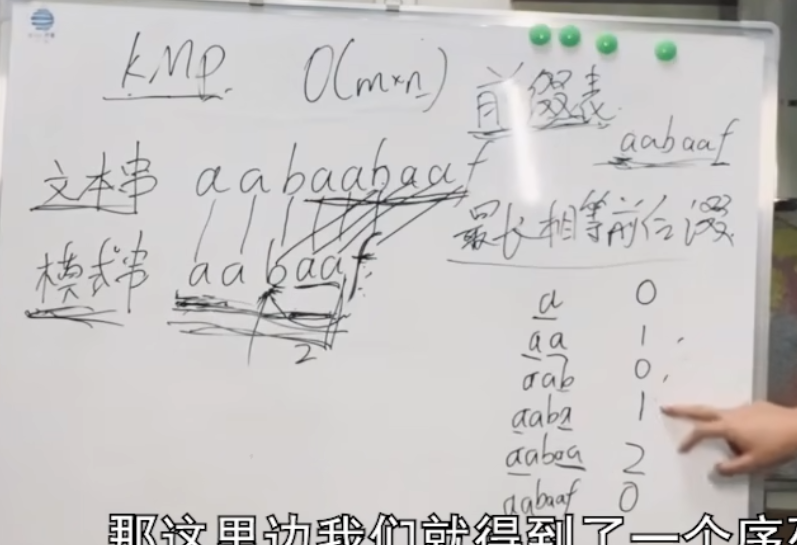 KMP O(m×n)
前缀表
aabaaf
文本串 aabaabaaf
最长相等前后缀
模式串 aabaaf
2
a 0
aa 1
aab 0
aaba 1
aabaa 2
aabaaf 0
那这里边我们就得到了一个序